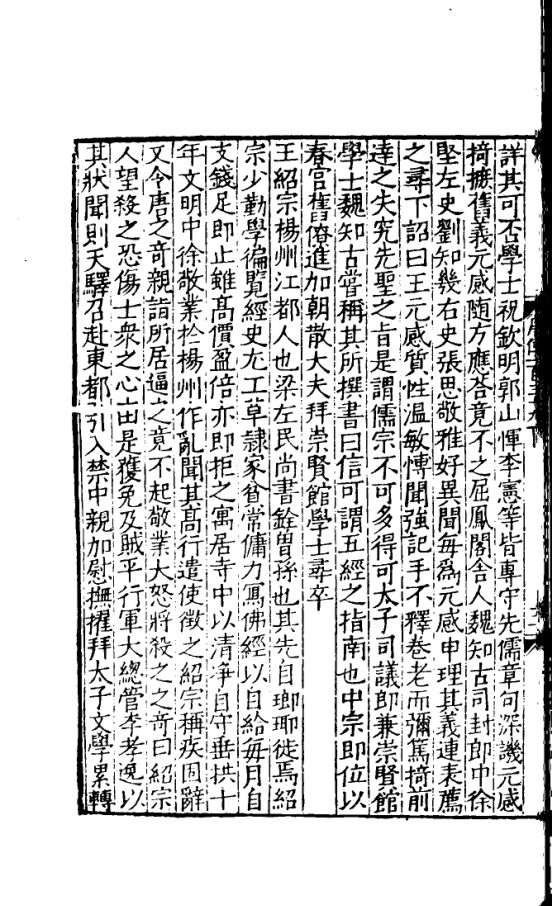 詳其可否學士祝欽明郭山惲李憲等皆專守先儒章句深譏元感
掎摭舊義元感随方應荅竟不之屈鳳閣舍人魏知古司封郎中徐
堅左史劉知幾右史張思敬雅好異聞每爲元感申理其義連表薦
之尋下詔曰王元感質性温敏愽聞強記手不釋卷老而彌篤掎前
達之失究先聖之旨是謂儒宗不可多得可太子司議郎兼崇賢館
學士魏知古甞稱其所撰書曰信可謂五經之指南也中宗即位以
春宫舊僚進加朝散大夫拜崇賢館學士尋卒
王紹宗楊州江都人也梁左民尚書銓曽孫也其先自瑯琊徙焉紹
宗少勤學徧覽經史尤工草隷家貧常傭力寫佛經以自給每月自
支錢足即止雖髙價盈倍亦即拒之寓居寺中以清淨自守垂拱十
年文明中徐敬業於楊州作亂聞其髙行遣使徵之紹宗稱疾固辭
又令唐之奇親詣所居逼之竟不起敬業大怒將殺之之奇曰紹宗
人望殺之恐傷士衆之心由是獲免及賊平行軍大總管李孝逸以
其狀聞則天驛召赴東都引入禁中親加慰撫擢拜太子文學累轉